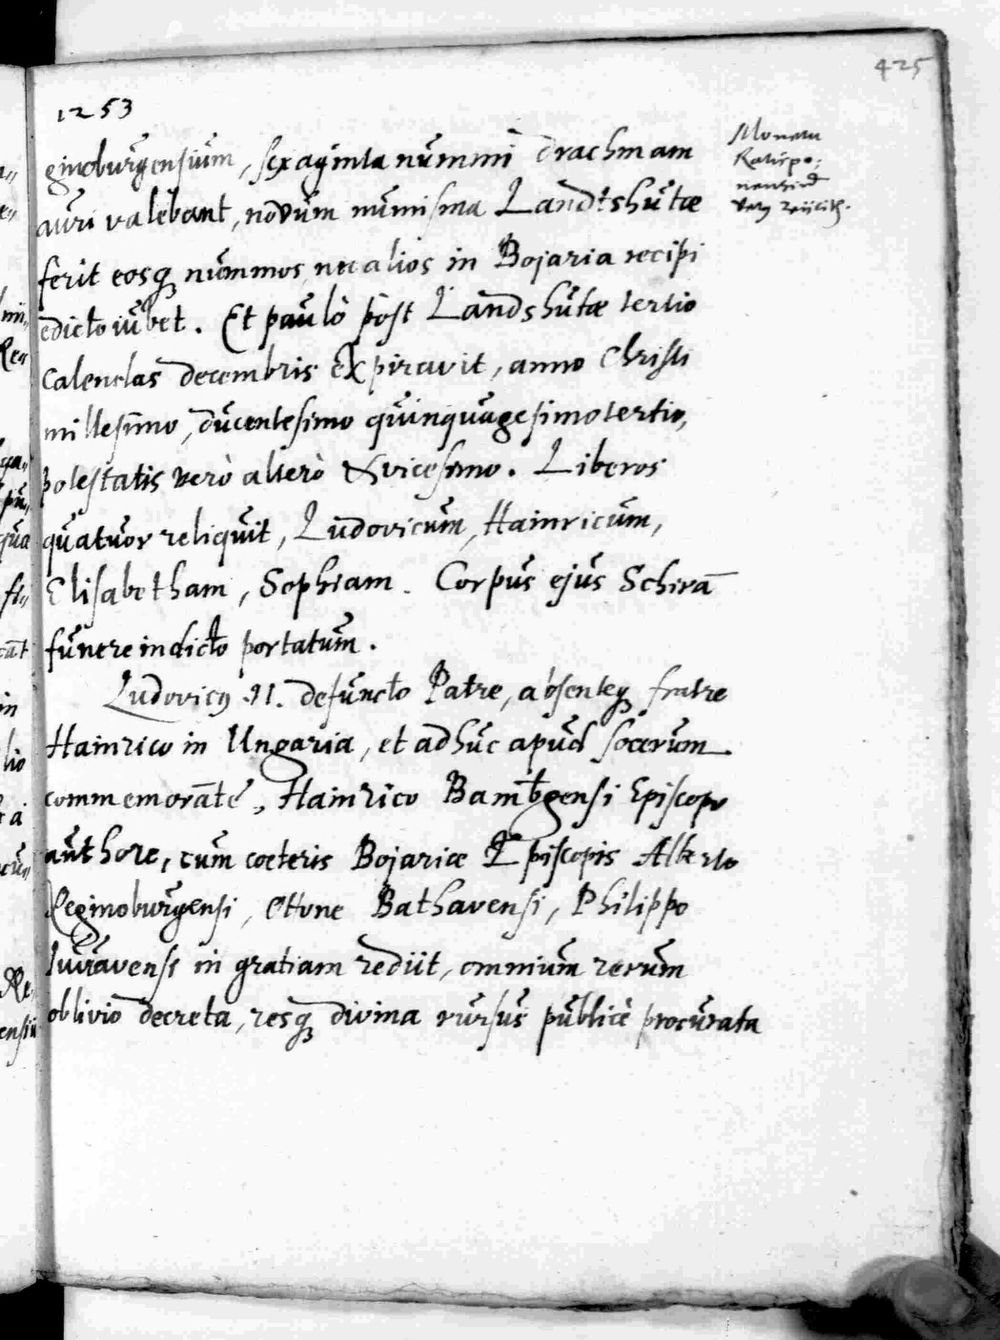 425
1253
ginoburgensium, sexaginta nummi drachmam
auri valebant, novum numisma Landtshutæ
ferit eosq; nummos, nec alios in Bojaria recipi
edicto iubet. Et paulò pòst Landshutæ tertio
Calendas decembris expiravit, anno Christi
millesimo, ducentesimo quinquagesimo tertio,
potestatis verò alterò & vicesimo. Liberos
quatuor reliquit, Ludovicum, Hainricum,
Elisabetham, Sophiam. Corpus ejus Schirā
funere indicto portatum.
Ludovicus II. defuncto Patre, absenteq; fratre
Hainrico in Ungaria, et adhuc apud socerum
commemorāte, Hainrico Bambgensi Episcopo
authore, cum cœteris Bojariæ Episcopis Alberto
Reginoburgensi, Ottone Bathavensi, Philippo
Iuvavensi in gratiam rediit, omnium rerum
oblivio decreta, resq; divina rursus publicè procurata
Moneta
Ratispo: